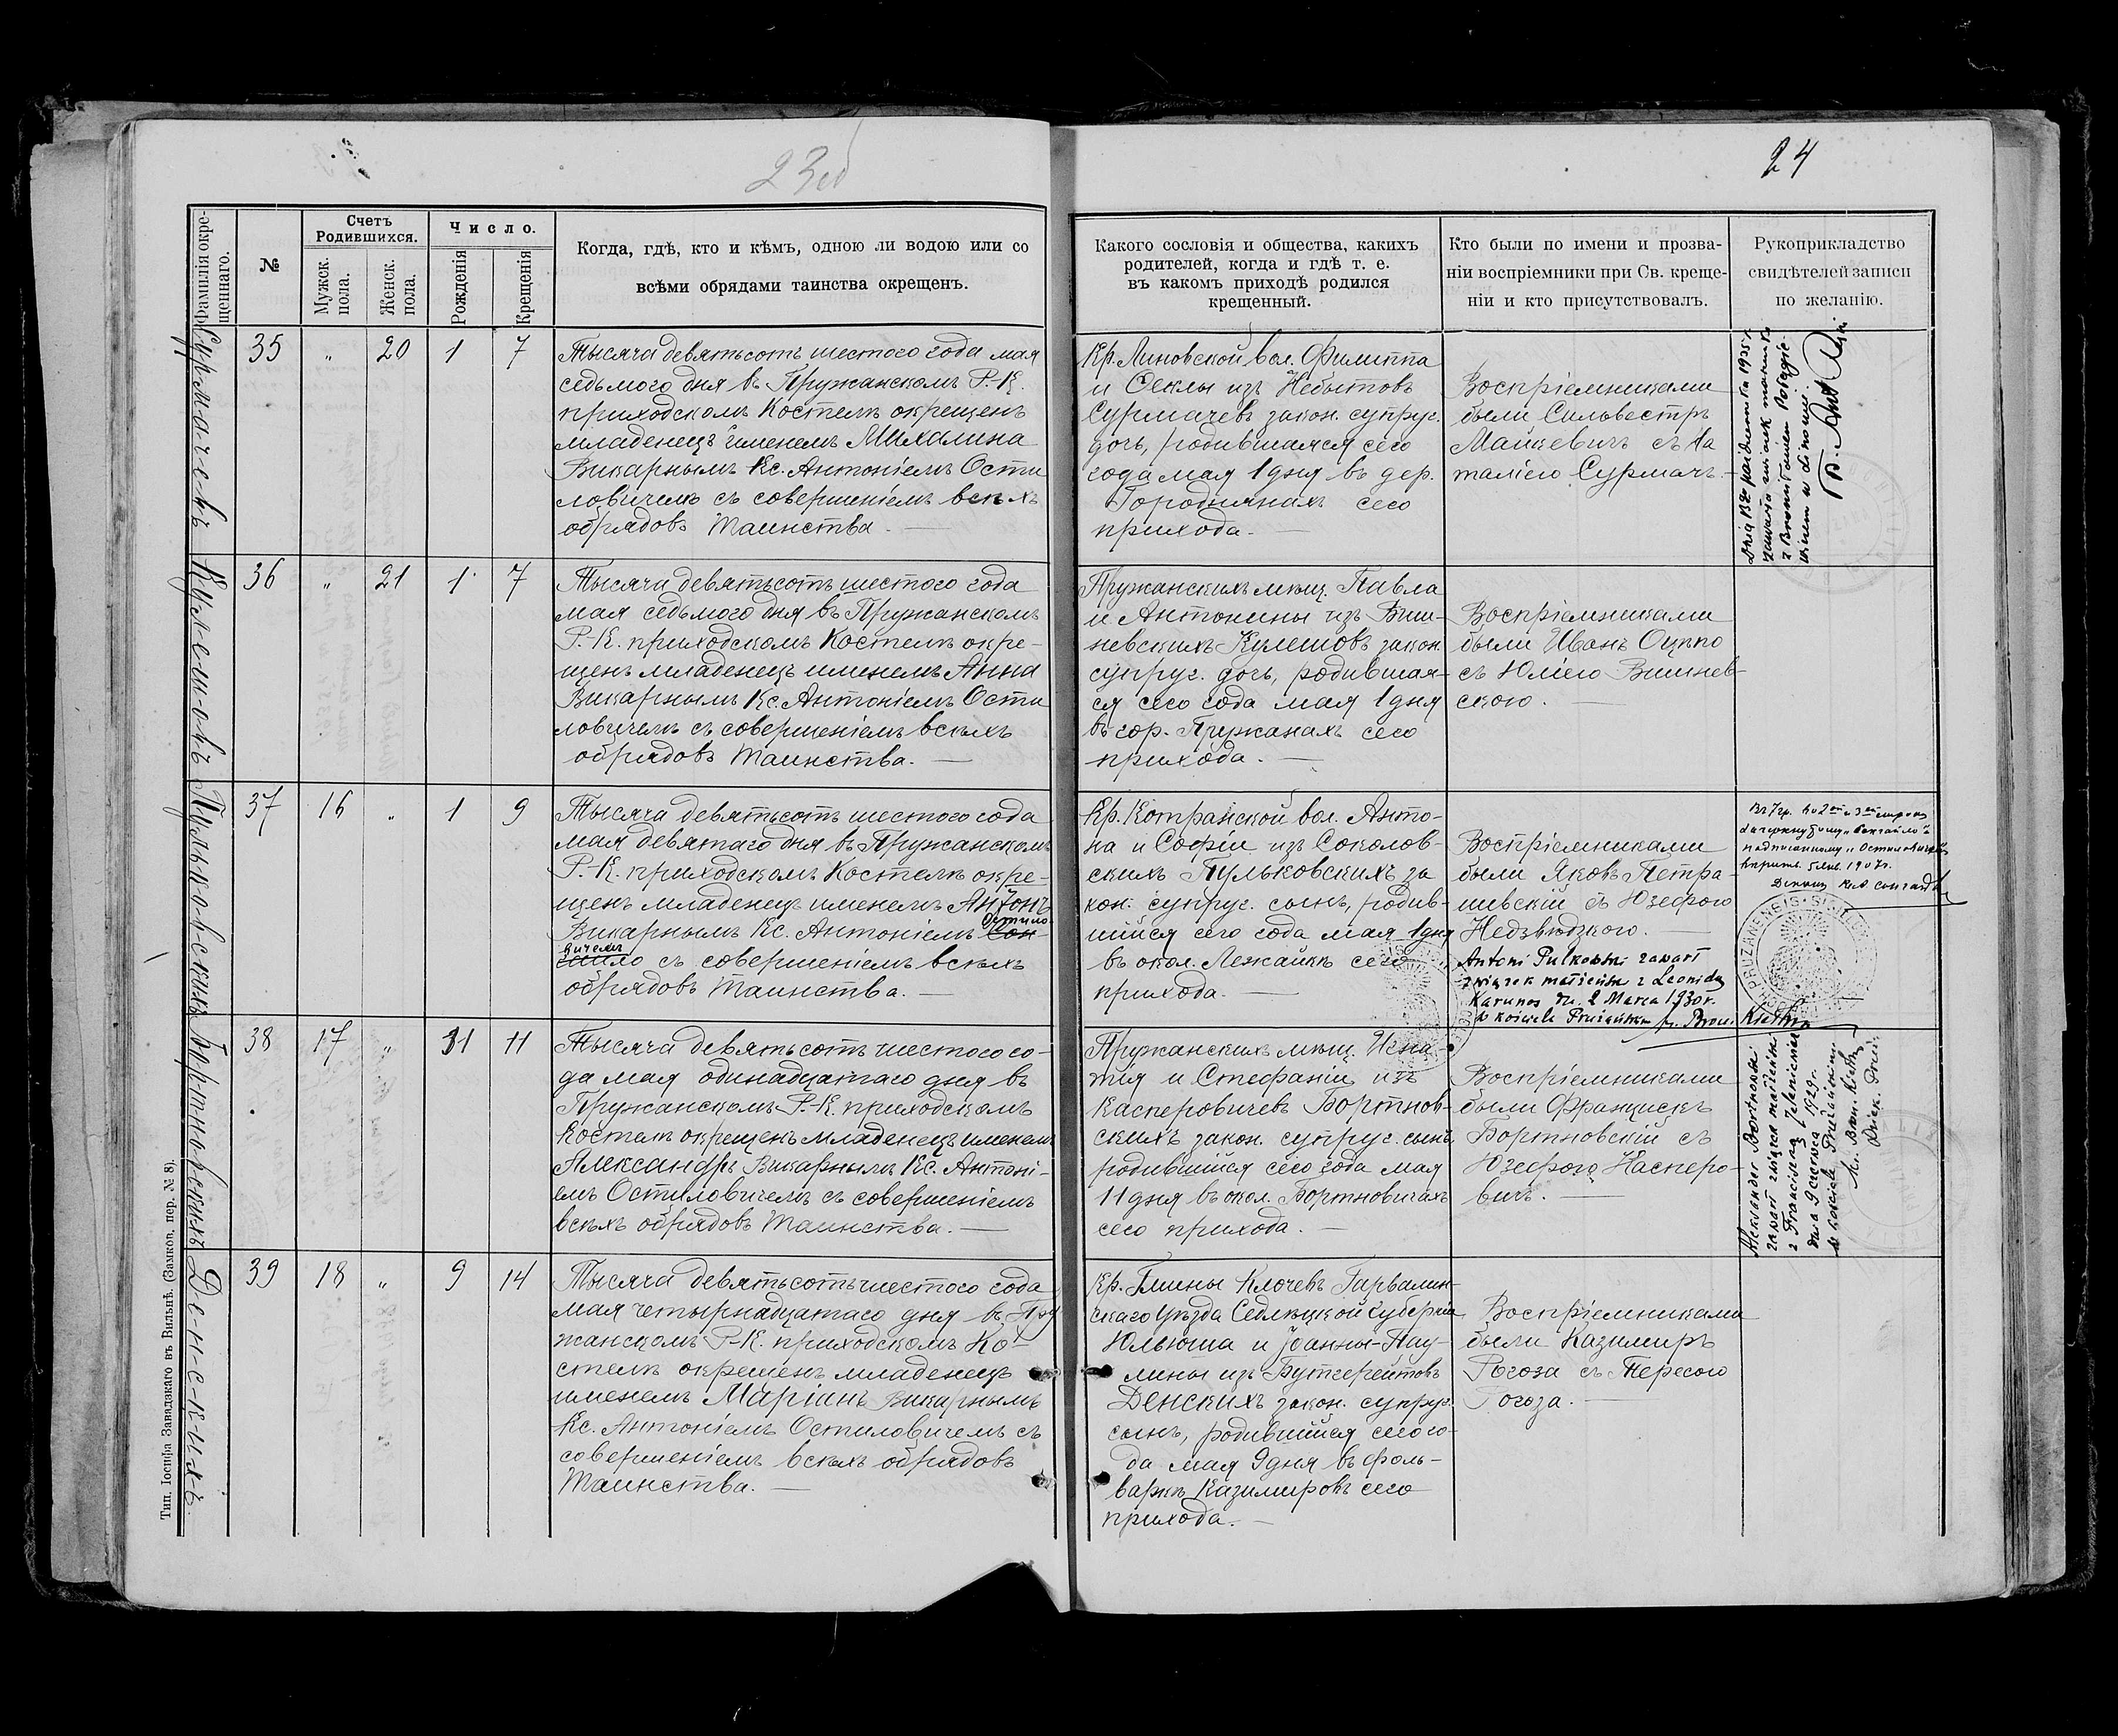 23об
24
Фамилія окре-
щеннаго.
№
Счетъ
Родившихся.
Мужск.
пола.
Женск.
пола.
Число.
Рожденія
Крещенія
Когда, гдѣ, кто и кѣмъ, одною ли водою или со
всѣми обрядами таинства окрещенъ.
Какого сословія и общества, какихъ
родителей, когда и гдѣ т. е.
въ какомъ приходѣ родился
крещенный.
Кто были по имени и прозва-
ніи воспріемники при Св. креще-
ніи и кто присутствовалъ.
Рукоприкладство
свидѣтелей записи
по желанію.
Сурмачевъ
35 „ 20 1 7
Тысяча девятьсотъ шестого года мая
седьмого дня въ Пружанскомъ Р.-К.
приходскомъ Костелѣ окрещенъ
младенецъ именемъ Михалина
Викарнымъ Кс. Антоніемъ Ости
ловичемъ съ совершеніемъ всѣхъ
обрядовъ Таинства.
Кр. Линовской вол. Филиппа
и Феклы изъ Небытовъ
Сурмачевъ закон. супруг.
дочь, родившаяся сего
года мая 1 дня въ дер.
Городнянахъ сего
прихода.
Воспріемниками
были Сильвестръ
Мацкевичъ съ На
таліею Сурмачъ.
Dnia 13go października 1935 r.
zawarła związek małżeński
z Bronisławem
Кулешовъ
36 „ 21 1 7
Тысяча девятьсотъ шестого года
мая седьмого дня въ Пружанскомъ
Р.-К. приходскомъ Костелѣ окре-
щенъ младенецъ именемъ Анна
Викарнымъ Кс. Антоніемъ Ости
ловичемъ съ совершеніемъ всѣхъ
обрядовъ Таинства.
Пружанскихъ мѣщ. Павла
и Антонины изъ Виш-
невскихъ Кулешовъ закон.
супруг. дочь, родившая-
ся сего года мая 1 дня
въ гор. Пружанахъ сего
прихода.
Воспріемниками
были Иванъ Оцѣпо
съ Юліею Вишнев-
скою.
Пульковскихъ
37 16 „ 1 9
Тысяча девятьсотъ шестого года
мая девятаго дня въ Пружанскомъ
Р.-К. приходскомъ Костелѣ окре-
щенъ младенецъ именемъ Антонъ
Остило
Викарнымъ Кс. Антоніемъ
вичемъ
съ совершеніемъ всѣхъ
обрядовъ Таинства.
Кр. Котранской вол. Анто-
на и Софіи изъ Соколов-
скихъ Пульковскихъ за
кон. супруг. сынъ, родив-
шійся сего года мая 1 дня
въ окол. Лежайкѣ сего
прихода.
Воспріемниками
были Яковъ Петра-
шевскій съ Юзефою
Недзвюдзкого.
Antoni Pulkowski zawarł
związek małżeński z Leonidą
Karunos dn. 2 Marca 1930 r.
w kościele Prużańskim
5 янв. 1907 г.
PRUZANENSIS
Бортновскихъ
38 17 „ 31 11
Тысяча девятьсотъ шестого го-
да мая одинадцатаго дня въ
Пружанскомъ Р.-К. приходскомъ
Костелѣ окрещенъ младенецъ именемъ
Александръ Викарнымъ Кс. Антоні-
емъ Остиловичемъ съ совершеніемъ
всѣхъ обрядовъ Таинства.
Пружанскихъ мѣщ. Игна-
тія и Стефаніи изъ
Касперовичевъ Бортнов-
скихъ закон. супруг. сынъ,
родившійся сего года мая
11 дня въ окол. Бортновичахъ
сего прихода.
Воспріемниками
были Францискъ
Бортновскій съ
Юзефою Касперо-
вичъ.
Aleksander Bortnowski
zawarł związek małżeński
z Franciszką
dnia 9 czerwca 1929 r.
w kościele Prużańskim
Денскихъ
39 18 „ 9 14
Тысяча девятьсотъ шестого года
мая четырнадцатаго дня въ Пру
жанскомъ Р.-К. приходскомъ Ко-
стелѣ окрещенъ младенецъ
именемъ Маріанъ Викарнымъ
Кс. Антоніемъ Остиловичемъ съ
совершеніемъ всѣхъ обрядовъ
Таинства.
Кр. Гмины Клочевъ Гарволин-
скаго уѣзда Седлецкой губерніи
Юльюша и Іоанны-Пау-
лины изъ Бутгерейтовъ
Денскихъ закон. супруг.
сынъ, родившійся сего го-
да мая 9 дня въ фоль-
варкѣ Казимировъ сего
прихода.
Воспріемниками
были Казимиръ
Рогоза съ Тересою
Рогоза.
Тип. Іосифа Завадзкаго въ Вильнѣ. (Замков. пер. № 8).